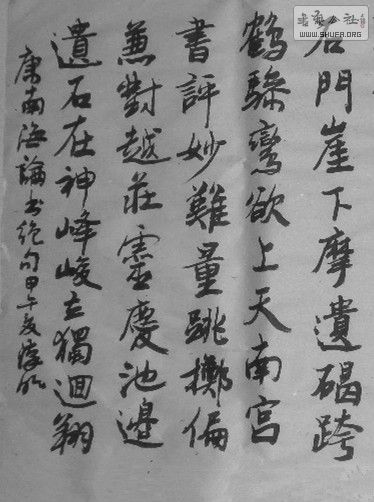 石門崖下摩遺碣跨
鶴驂鸞欲上天南宮
書評妙難量跳擲偏
兼對越莊靈慶池邊
遺石在神峰峻立獨迴翔
康南海論書絕句甲午夏
書法公社
WWW.SHUFA.ORG